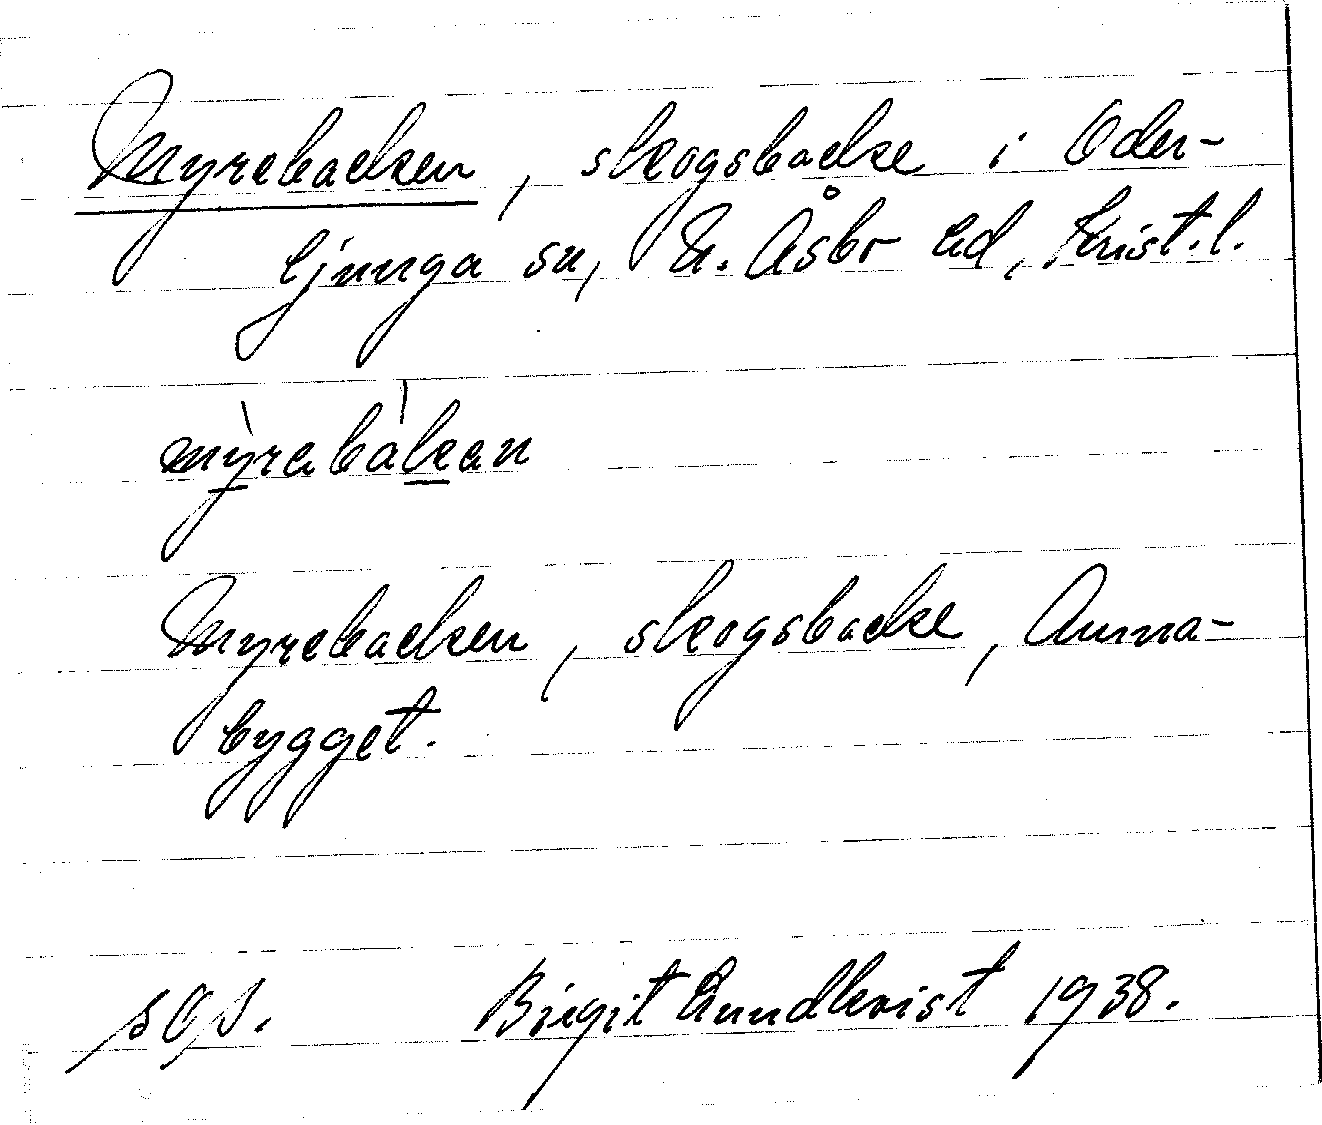 Myrebacken, skogsbacke i Oder-
ljunga sn, N. Åsbo hd, Krist. l.
mỳrabàkan
Myrebacken, skogsbacke, Anna-
bygget.
Birgit Lundkvist 1938.